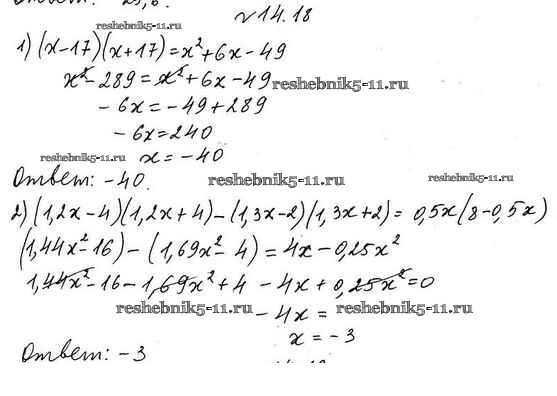 Ответ: 25,6.
№14.18
reshebnik5-11.ru
1) (x-17)(x+17)=x²+6x-49
x²-289=x²+6x-49 reshebnik5-11.ru
-6x=-49+289
-6x=240
reshebnik5-11.ru x=-40
Ответ: -40. reshebnik5-11.ru
2) (1,2x-4)(1,2x+4)-(1,3x-2)(1,3x+2)=0,5x(8-0,5x)
(1,44x²-16)-(1,69x²-4)=4x-0,25x²
1,44x²-16-1,69x²+4-4x+0,25x²=0
reshebnik5-11.ru -4x= reshebnik5-11.ru
x=-3
Ответ: -3